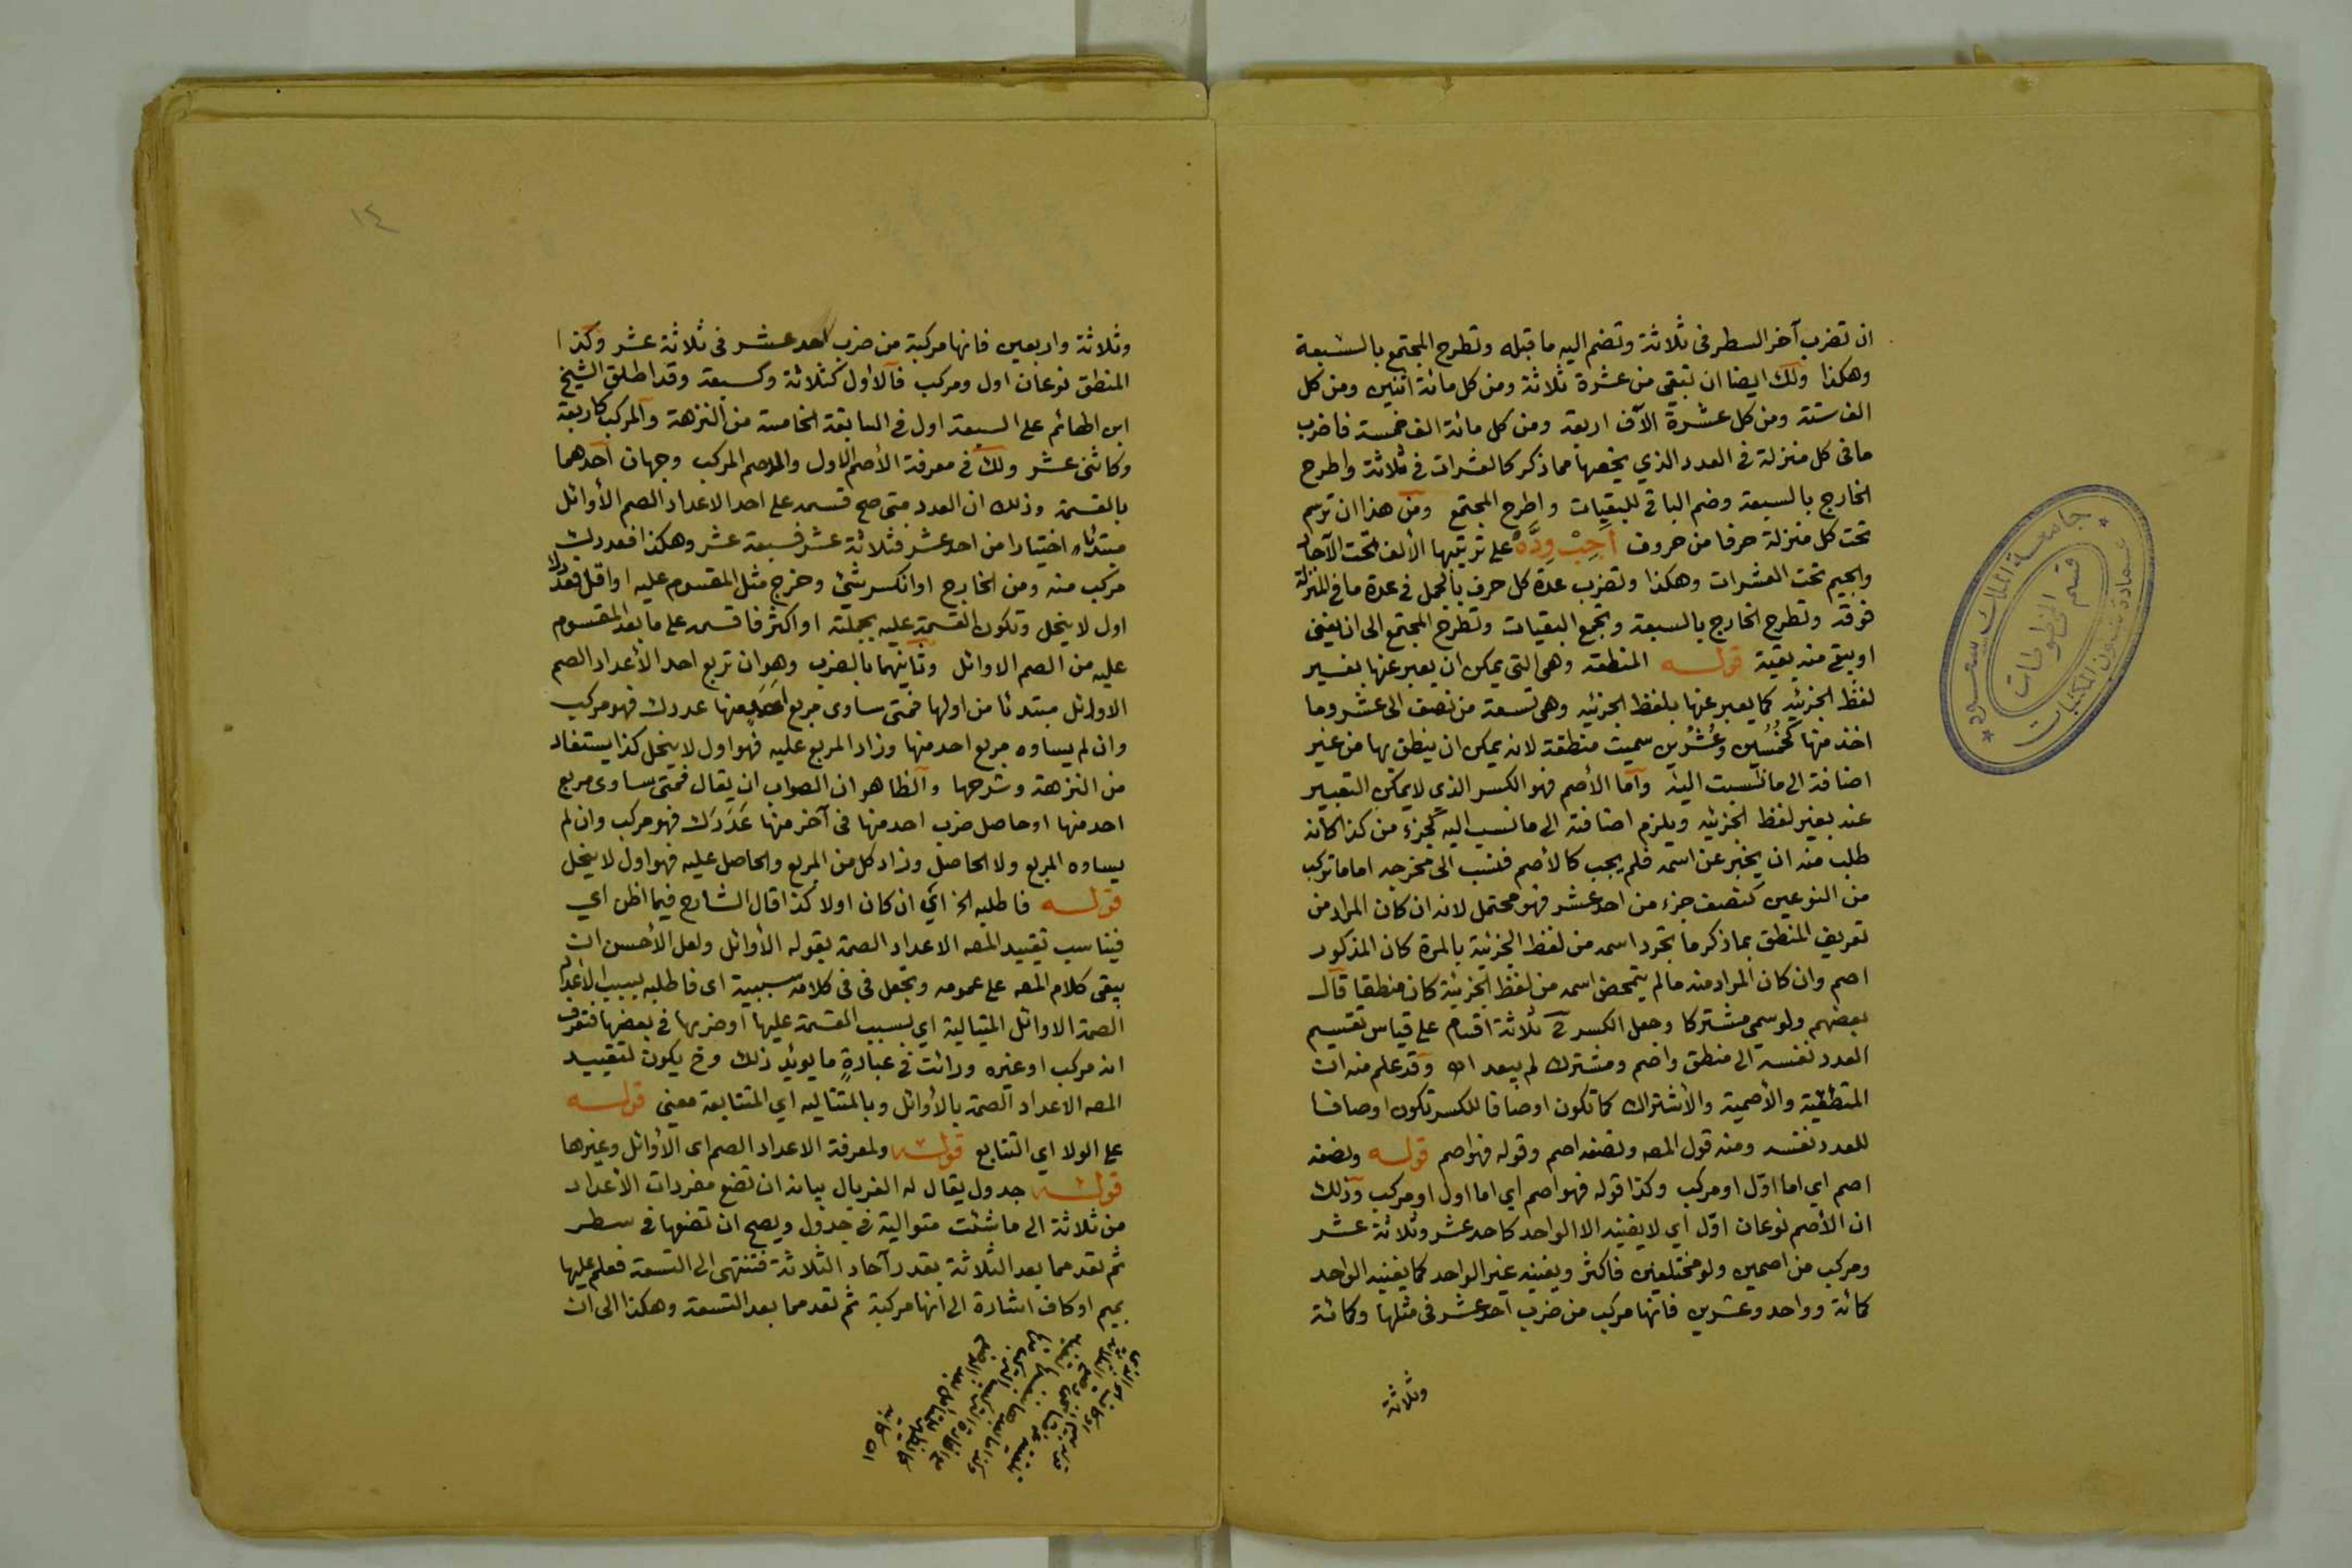 ان تضرب آخر السطر في ثلاثة وتضم اليه ما قبله وتطرح المجتمع بالسبعة
وهكذا ولك ايضا ان تبقي من عشرة ثلاثة ومن كل مائة اثنين ومن كل
الف ستة ومن كل عشرة الآف اربعة ومن كل مائة الف خمسة فاضرب
ما في كل منزلة في العدد الذي يخصها مما ذكر كالعشرات في ثلاثة واطرح
الخارج بالسبعة وضم الباقي للبقيات واطرح المجتمع ومن هذا ان ترسم
تحت كل منزلة حرفا من حروف أجب ودّه على ترتيبها الألف تحت الآحاد
والجيم تحت العشرات وهكذا وتضرب عدة كل حرف بالجمل في عدة ما في المنزلة
فوقه وتطرح الخارج بالسبعة وتجمع البقيات وتطرح المجتمع الى ان يفنى
او يبقى منه بقية قوله المنطقه وهي التي يمكن ان يعبر عنها بغير
لفظ الجزئيه كما يعبر عنها بلفظ الجزئيه وهي تسعة من نصف الى عشر وما
اخذ منها كخُمُسَين وعُشُرين سميت منطقة لانه يمكن ان ينطق بها من غير
اضافة الى ما نسبت اليه وأما الأصم فهو الكسر الذي لا يمكن التعبير
عنه بغير لفظ الجزئيه ويلزم اضافته الى ما نسب اليه كجزء من كذا كأنه
طلب منه ان يخبر عن اسمه فلم يجب كالأصم فنسب الى مخرجه اما ما تركب
من النوعين كنصف جزء من احد عشر فهو محتمل لانه ان كان المراد من
تعريف المنطق بما ذكر ما تجرد اسمه من لفظ الجزئية بالمرة كان المذكور
اصم وان كان المراد منه مالم يتمحض اسمه من لفظ الجزئية كان منطقيا قال
بعضهم ولو سمي مشتركا وجعل الكسر ثلاثة اقسام على قياس تقسيم
العدد نفسه الى منطق واصم ومشترك لم يبعد اهـ وقد علم منه ان
المنطقية والأصمية والأشتراك كما تكون اوصافا للكسر تكون اوصافا
للعدد نفسه ومنه قول المصه ونصفه اصم وقوله فهو اصم قوله ونصفه
اصم اي اما اوّل او مركب وكذا قوله فهو اصم اي اما اول او مركب وذلك
ان الأصم نوعان اوّل اي لا يفنيه الا الواحد كاحد عشر وثلاثة عشر
ومركب من اصمين ولو مختلفين فاكثر ويفنيه غير الواحد كما يفنيه الواحد
كمائة وواحد وعشرين فانها مركب من ضرب احد عشر في مثلها وكمائة
وثلاثة
جامعة الملك سعود
عمادة شئون المكتبات
قسم المخطوطات
١٤
وثلاثة واربعين فانها مركبة من ضرب احد عشر في ثلاثة عشر وكذا
المنطق نوعان اول ومركب فالاول كثلاثة وكسبعة وقد اطلق الشيخ
ابن الهائم على السبعة اول في السابقة الخامسة من النزهة والمركب كاربعة
وكاثني عشر ولك في معرفة الأصم الاول والاصم المركب وجهان احدهما
بالقسمة وذلك ان العدد متى صح قسمه على احد الاعداد الصم الأوائل
مبتدئا اختيارا من احد عشر فثلاثة عشر فسبعة عشر وهكذا فعددك
مركب منه ومن الخارج او انكسر شئ وخرج مثل المقسوم عليه او اقل فعدد
اول لا ينحل وتكون القسمة عليه بجملته او اكثر فاقسمه على ما بعد المقسوم
عليه من الصم الاوائل وثانيهما بالضرب وهو ان تربع احد الأعداد الصم
الاوائل مبتدئا من اولها فمتى ساوى مربع احد منها عددك فهو مركب
وان لم يساوه مربع احد منها وزاد المربع عليه فهو اول لا ينحل كذا يستفاد
من النزهة وشرحها والظاهر ان الصواب ان يقال فمتى ساوى مربع
احد منها او حاصل ضرب احد منها في آخر منها عَدَدَك فهو مركب وان لم
يساوه المربع ولا الحاصل وزاد كل من المربع والحاصل عليه فهو اول لا ينحل
قوله فاطلبه الخ اي ان كان اولا كذا قال الشارح فيما اظن اي
فيناسب تقييد المصه الاعداد الصمة بقوله الأوائل ولعل الأحسن ان
يبقى كلام المصه على عمومه وتجعل في في كلامه سببية اى فاطلبه بسبب الاعداد
الصمة الاوائل المتتالية اي بسبب القسمة عليها او ضربها في بعضها فتعرف
انه مركب او غيره ورأيت في عبارةٍ ما يوئيد ذلك وح يكون لتقييد
المصه الاعداد الصمة بالأوائل وبالمتتاليه اي المتتابعة معنى قوله
على الولا اي التتابع قوله ولمعرفة الاعداد الصم اى الأوائل وغيرها
قوله جدول يقال له الغربال بيانه ان تضع مفردات الأعداد
من ثلاثة الى ما شئت متوالية في جدول ويصح ان تضعها في سطر
ثم تعد مما بعد الثلاثة بقدر آحاد الثلاثة فتنتهى الى التسعة فعلم عليها
بميم او كاف اشارة الى انها مركبة ثم تعد مما بعد التسعة وهكذا الى ان